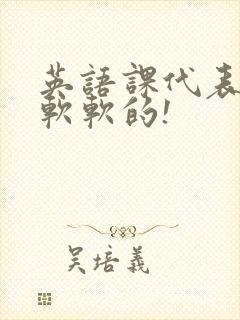 英語課代表
軟軟的!
吳培義